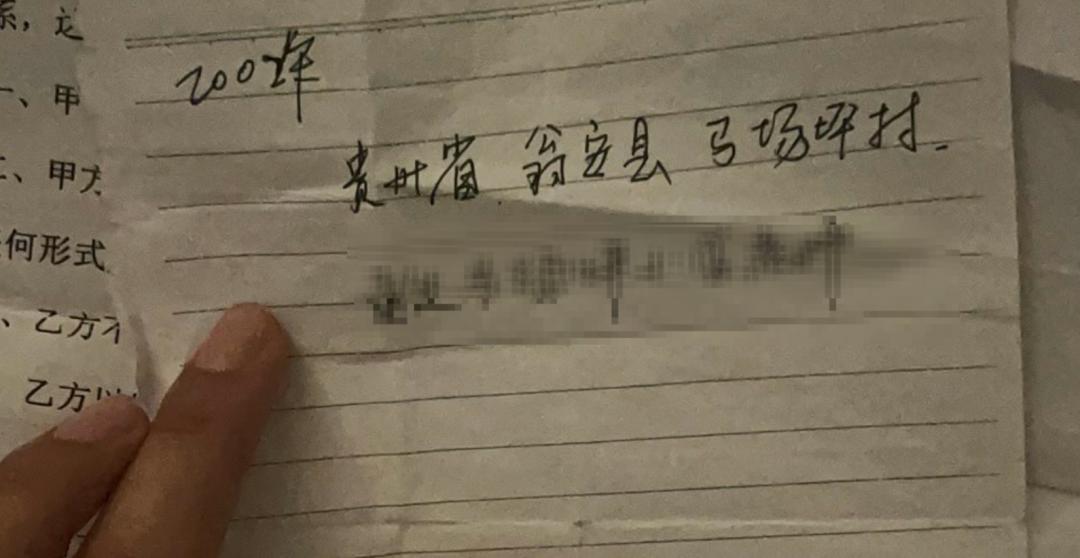 系，这
2002年
一、甲
贵州省 翁安县 马场坪村.
二、甲方
何形式
、乙方不
乙方